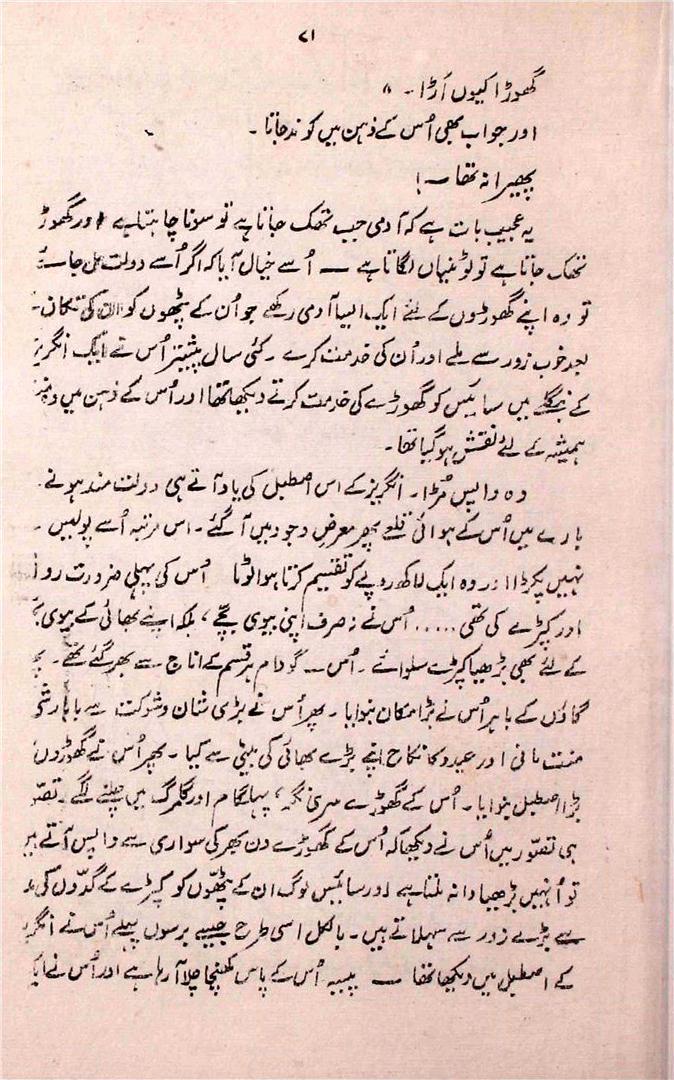 ۸۱
گھوڑا کیوں اَڑا۔ "
اور جواب بھی اُس کے ذہن میں کوند جاتا۔
پھیرا نہ تھا ــ!
یہ عجیب بات ہے کہ آدمی جب تھک جاتا ہے تو سونا چاہتا ہے اور گھوڑ
تھک جاتا ہے تو لوٹنیاں لگاتا ہے ــ اُسے خیال آیا کہ اگر اُسے دولت مل جائے
تو وہ اپنے گھوڑوں کے لئے ایک ایسا آدمی رکھے جو اُن کے پٹھوں کو ان کی تکان
بعد خوب زور سے ملے اور اُن کی خدمت کرے۔ کئی سال پیشتر اُس نے ایک انگریز
کے بنگلے میں سائیس کو گھوڑے کی خدمت کرتے دیکھا تھا اور اُس کے ذہن میں وہ
ہمیشہ کے لئے نقش ہو گیا تھا۔
وہ واپس مُڑا۔ انگریز کے اس اصطبل کی یاد آتے ہی دولت مند ہونے
بارے میں اُس کے ہوائی قلعے پھر معرضِ وجود میں آ گئے۔ اس مرتبہ اُسے پولیس
نہیں پکڑا اور وہ ایک لاکھ روپے کو تقسیم کرتا ہوا لوٹا اُس کی پہلی ضرورت رو
اور کپڑے کی تھی ..... اُس نے نہ صرف اپنی بیوی بچے، بلکہ اپنے بھائی کے بیوی
کے لئے بھی بڑھیا کپڑے سلوائے۔ اُس ــ گودام ہر قسم کے اناج سے بھر گئے تھے۔
گاؤں کے باہر اُس نے بڑا مکان بنوایا۔ پھر اُس نے بڑی شان و شوکت سے بابا رشی
منت مانی اور عیدو کا نکاح اپنے بڑے بھائی کی بیٹی سے کیا۔ پھر اُس نے گھوڑوں
بڑا اصطبل بنوایا۔ اُس کے گھوڑے سری نگر، پہلگام اور گلمرگ میں چلنے لگے۔ تصوّ
ہی تصوّر میں اُس نے دیکھا کہ اُس کے گھوڑے دن بھر کی سواری سے واپس آتے ہیں
تو اُنہیں بڑھیا دانہ ملتا ہے اور سائیس لوگ ان کے پٹھّوں کو کپڑے کے گدّوں کی
سے بڑے زور سے سہلاتے ہیں۔ بالکل اسی طرح جیسے برسوں پہلے اُس نے انگر
کے اصطبل میں دیکھا تھا ــ پیسہ اُس کے پاس کھنچا چلا آ رہا ہے اور اُس نے